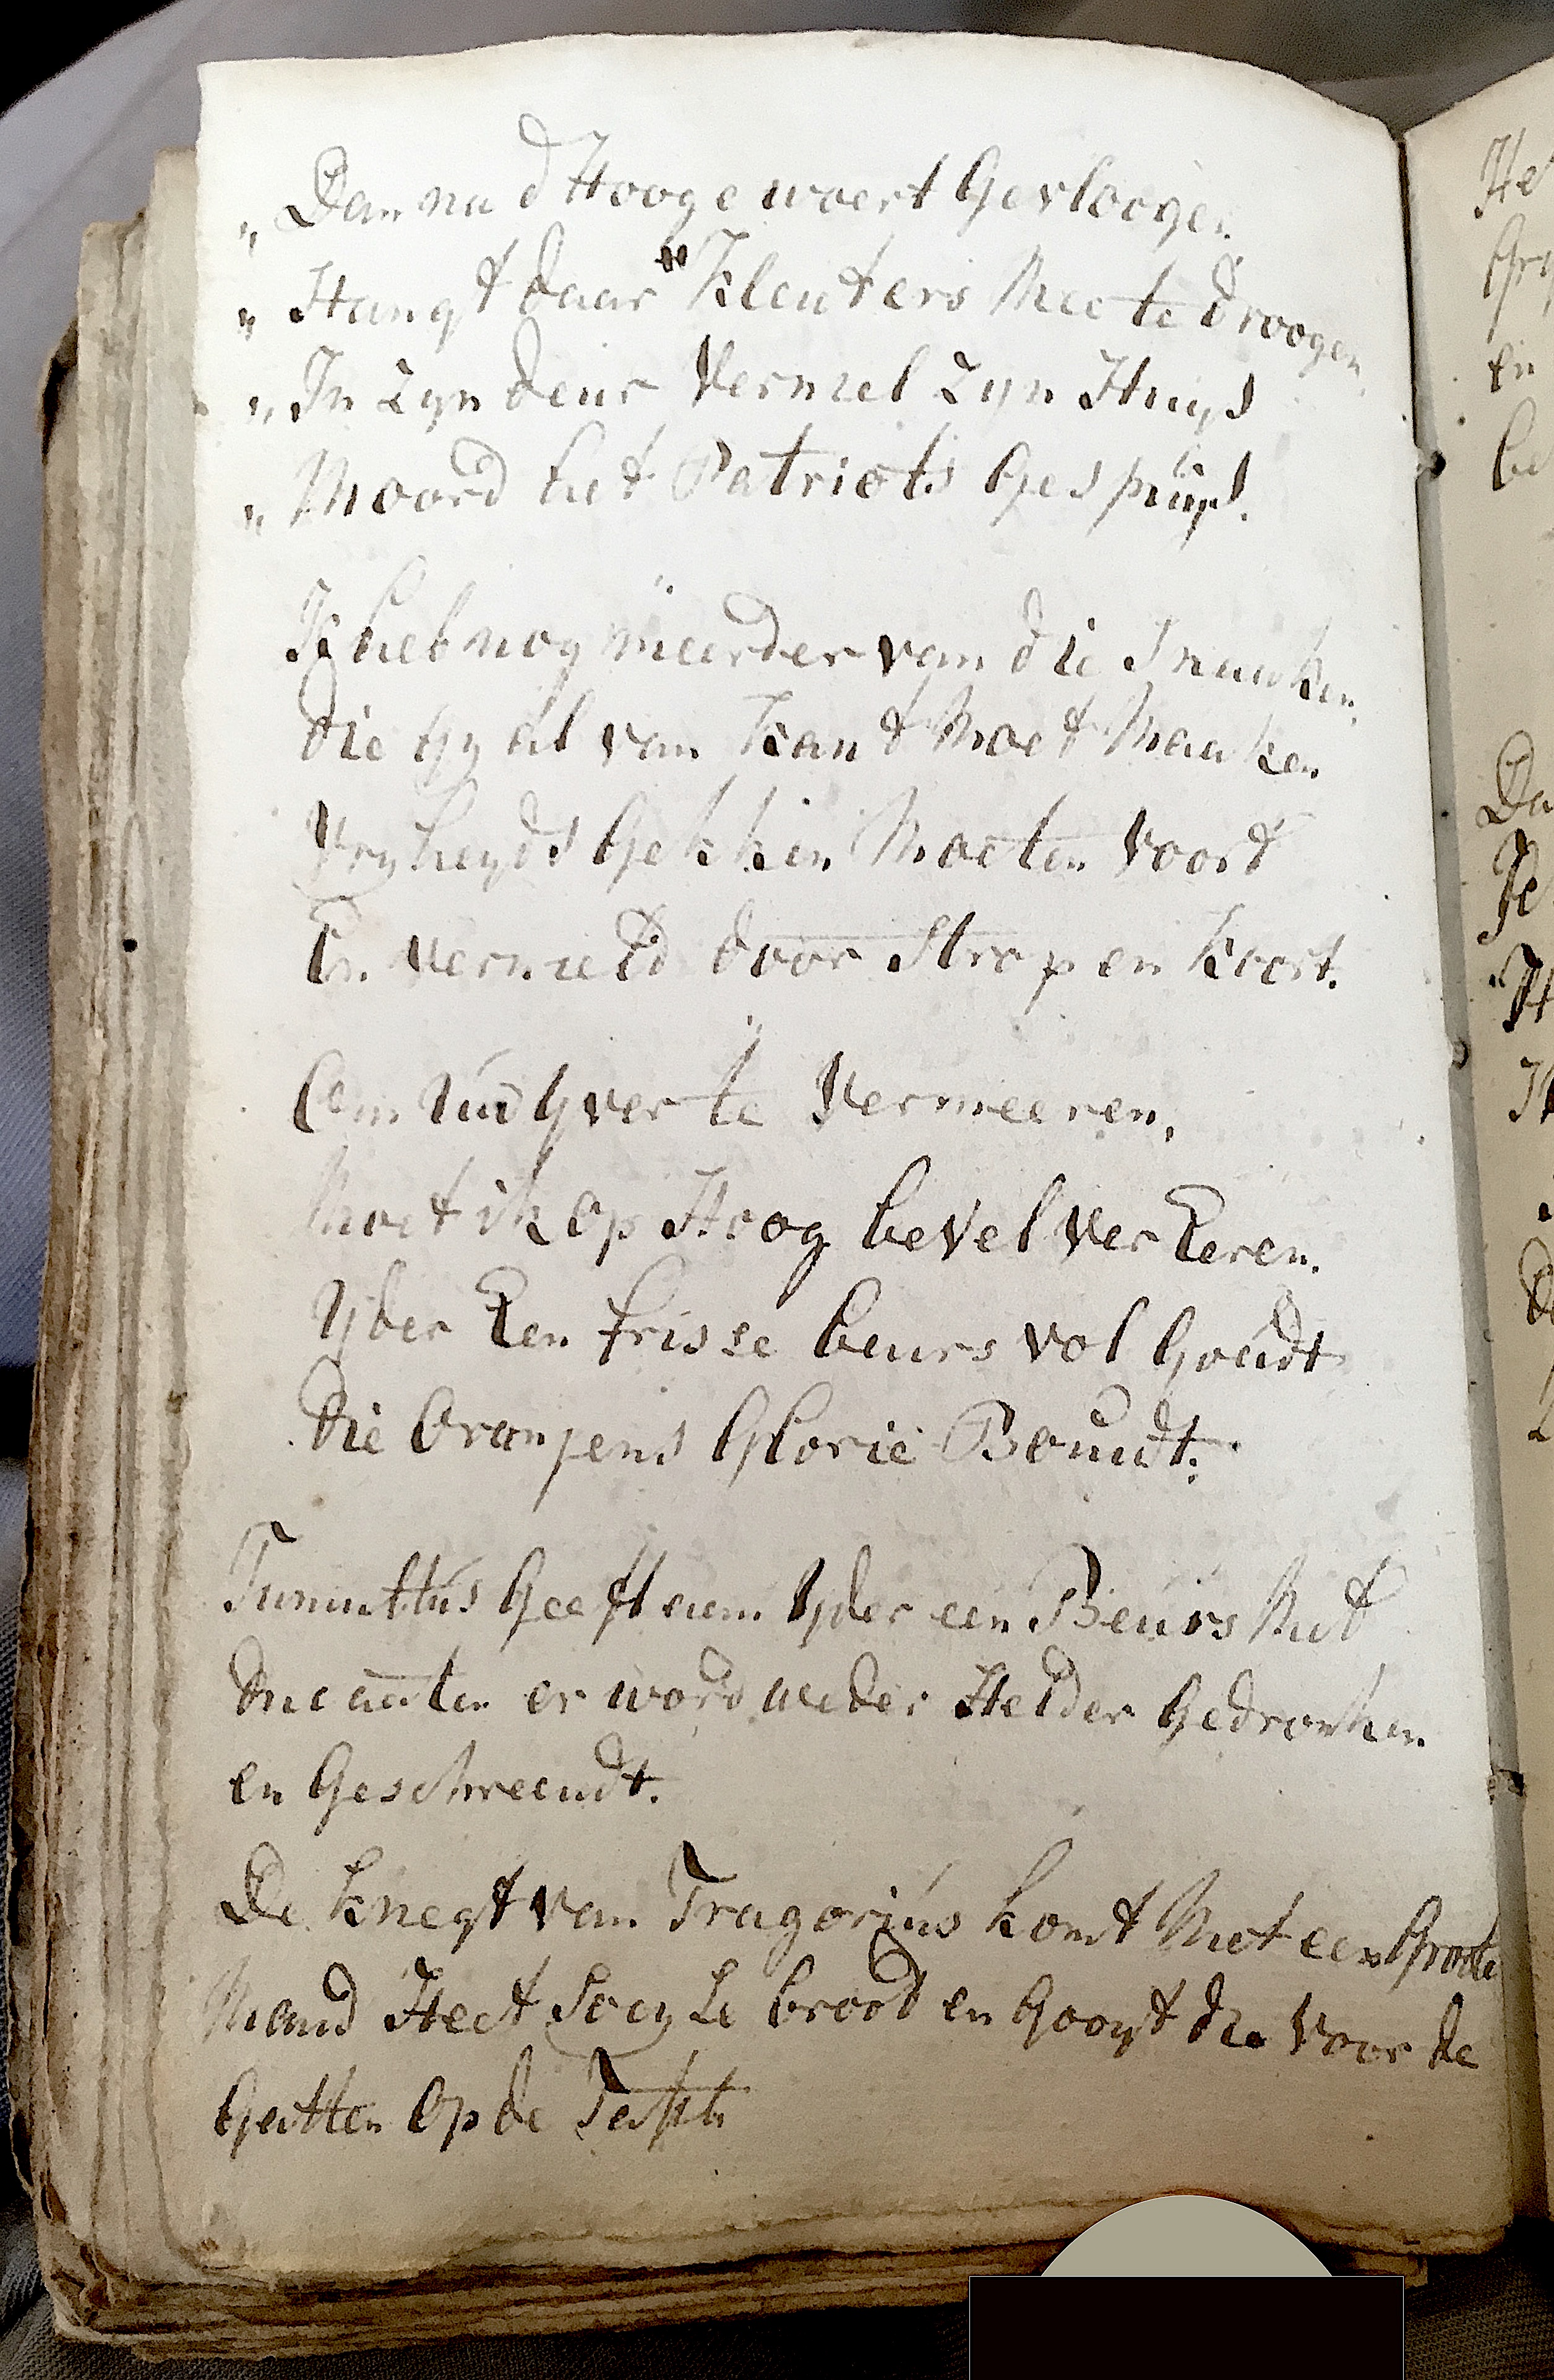 „ Dan na d Hooge woert Gevloogen
„ Hangt daar Kleuters Mee te droogen
„ In Zyn deur Verniel Zyn Huys
„ Moord het Patriots Gespuys.
Ik heb nog meerder van die Snaaken,
die Gy al van Kant Moet Maaken
Vryheyds Gekken Moeten Voort
En Vernield door Strop en Koort.
Om Uwd Yver te Vermeeren,
Moet ik Op Hoog bevel Ver Eeren.
Yder Een frisse beurs vol Goudt
die Oranjens Glorie Boudt.
Tumultus Geeft aan Yder een Beurs Met
ducaaten er word weder Helder Gedronken
en Geschreeudt.
De Knegt van Tragorius komt Met een Groote
Mand Heet brood en Gooyt die Voor de
Gasten Op de
He
Gry
en
be
Da
Je